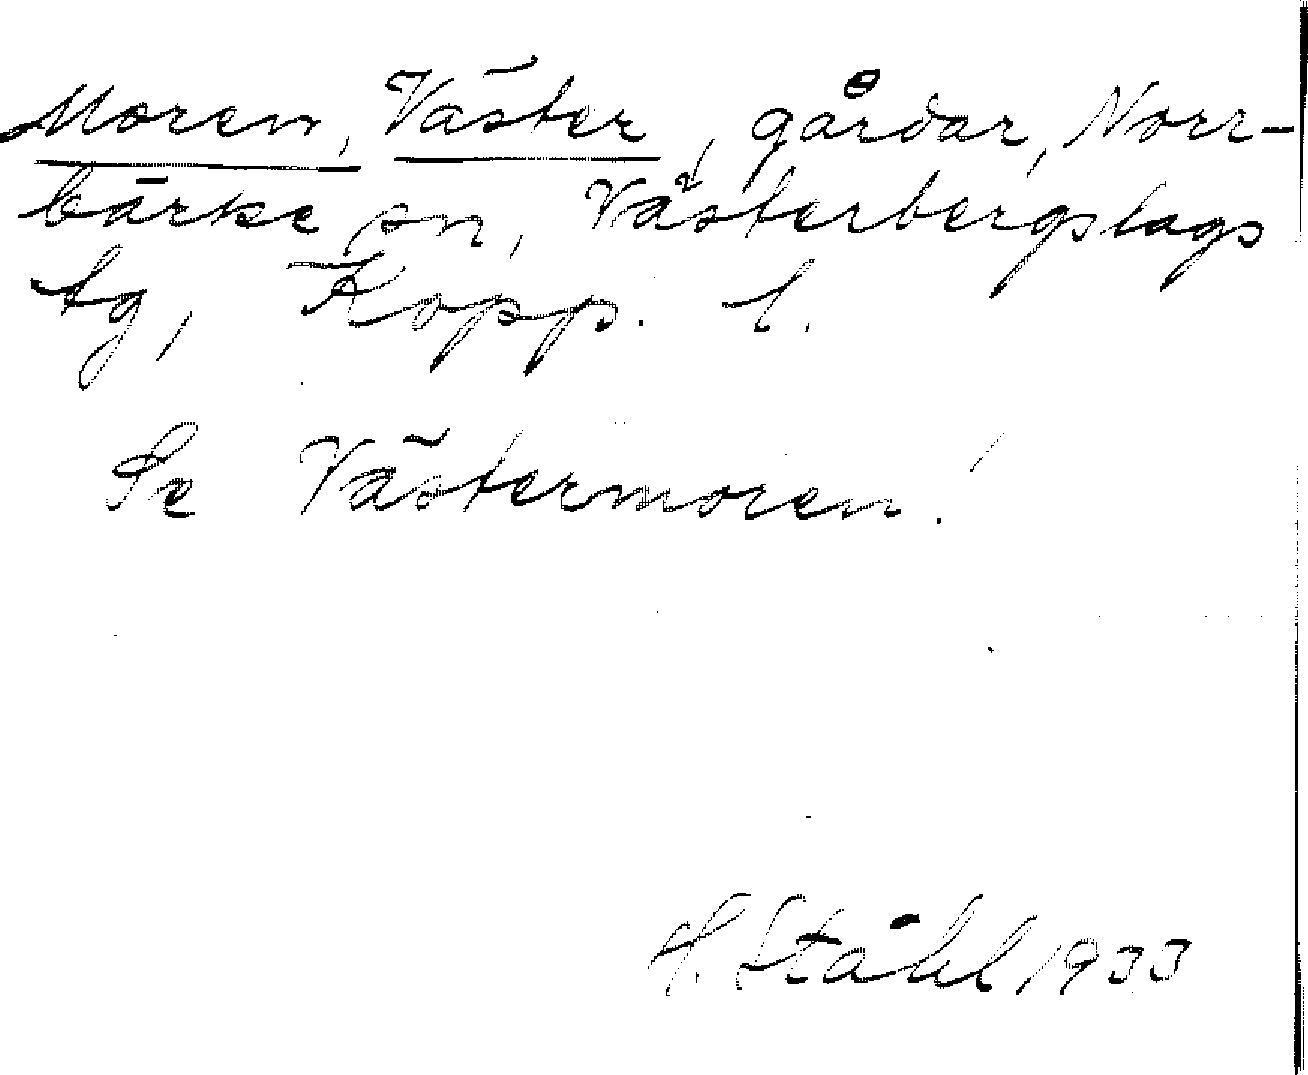 Moren, Väster, gårdar, Norr-
bärke sn, Västerbergslags
tg, Kopp. l.
Se Västermoren!
H. Ståhl 1933